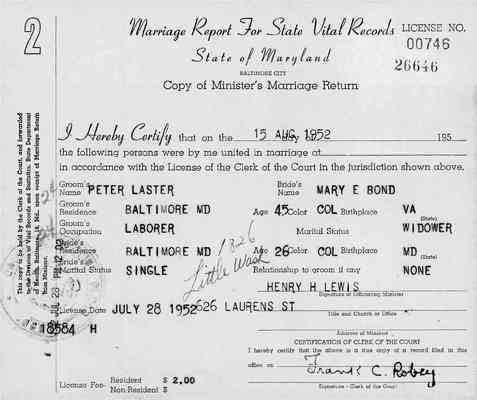 2
Marriage Report For State Vital Records
LICENSE NO.
00746
State of Maryland
26646
BALTIMORE CITY
Copy of Minister's Marriage Return
I Hereby Certify that on the 15 AUG 1952 day of 195
the following persons were by me united in marriage at
in accordance with the License of the Clerk of the Court in the jurisdiction shown above.
Groom's Name PETER LASTER Bride's Name MARY E BOND
Groom's Residence BALTIMORE MD Age 45 Color COL Birthplace VA (State)
Groom's Occupation LABORER Marital Status WIDOWER
Bride's Residence BALTIMORE MD Age 26 Color COL Birthplace MD (State)
Marital Status SINGLE Relationship to groom if any NONE
1826
Little Wash
HENRY H LEWIS
Signature of Officiating Minister
License Date JULY 28 1952 626 LAURENS ST
Title and Church or Office
18584 H
Address of Minister
CERTIFICATION OF CLERK OF THE COURT
I hereby certify that the above is a true copy of a record filed in this
office on
Frank C. Robey
Signature - Clerk of the Court
License Fee- Resident $ 2.00
Non-Resident $
This copy to be held by the Clerk of the Court, and forwarded
to the Division of Vital Records and Statistics, State Department
of Health, Baltimore 18, Md., upon receipt of Marriage Return
from Minister.